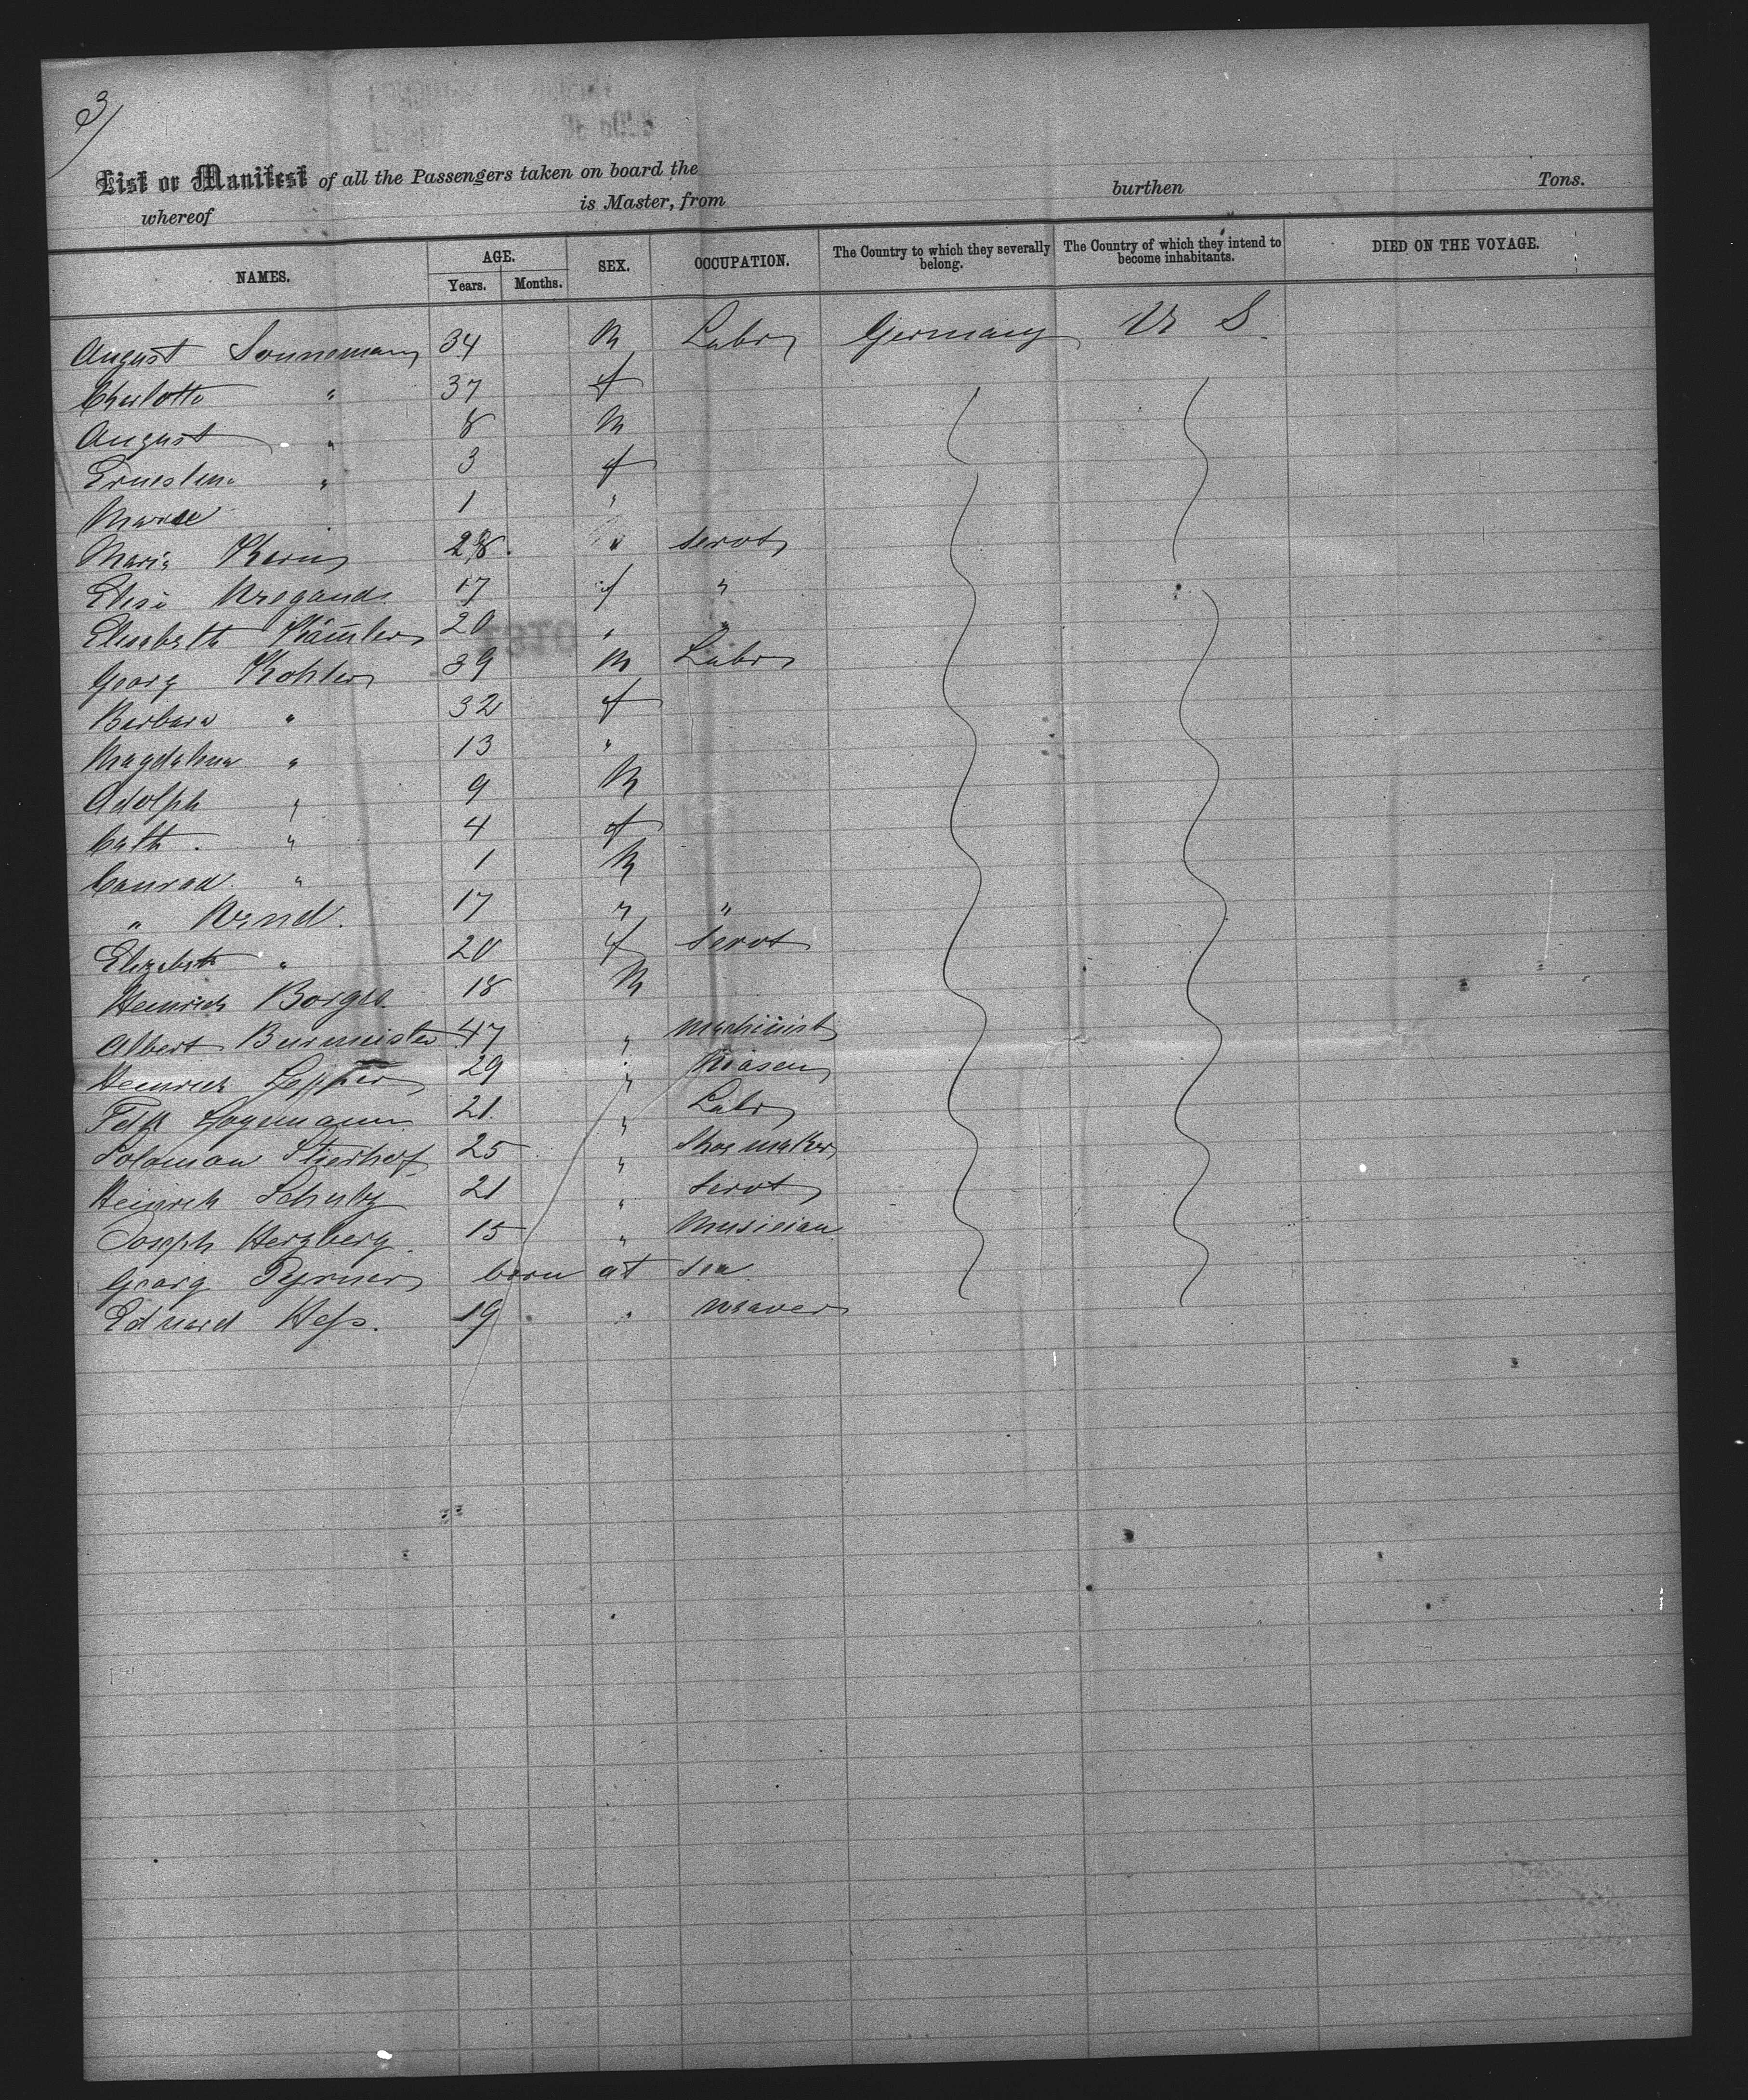 3/
List or Manifest of all the Passengers taken on board the burthen Tons.
whereof is Master, from
NAMES. AGE. Years. Months. SEX. OCCUPATION. The Country to which they severally belong. The Country of which they intend to become inhabitants. DIED ON THE VOYAGE.
August Sonnemann 34 M Labr Germany U S
Charlotte " 37 f
August " 8 M
Ernestine " 3 f
Marie 1 "
Maria Kern 28 " servt
Elise Wiegand 17 f "
Elisabeth 20 " "
Georg Kohler 39 M Labr
Barbara " 32 f
Magdalena " 13 "
Adolph " 9 M
Cath. " 4 f
Conrad " 1 M
" Wend. 17 " "
Elizabeth " 20 f servt
Heinrich Borges 18 M
Albert Burmeister 47 " machinist
Heinrich 29 " Mason
Fdk Hagemann 21 " Labr
Solomon Stierhof 25 " Shoemaker
Heinrich Schultz 21 " Servt
Joseph Herzberg. 15 " Musician
Georg born at sea
Eduard Hess. 19 " weaver